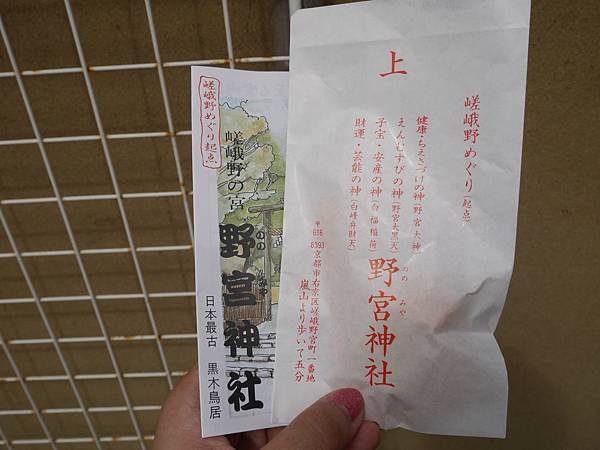 嵯峨野めぐり起点
嵯峨野の宮
野宮神社
ののみや
日本最古 黒木鳥居
上
嵯峨野めぐり(起点)
健康・ちえさづけの神(野宮大神)
えんむすびの神(野宮大黒天)
子宝・安産の神(白福稲荷)
財運・芸能の神(白峰弁財天)
野宮神社
ののみや
〒616 8393
京都市右京区嵯峨野宮町一番地
嵐山より歩いて五分